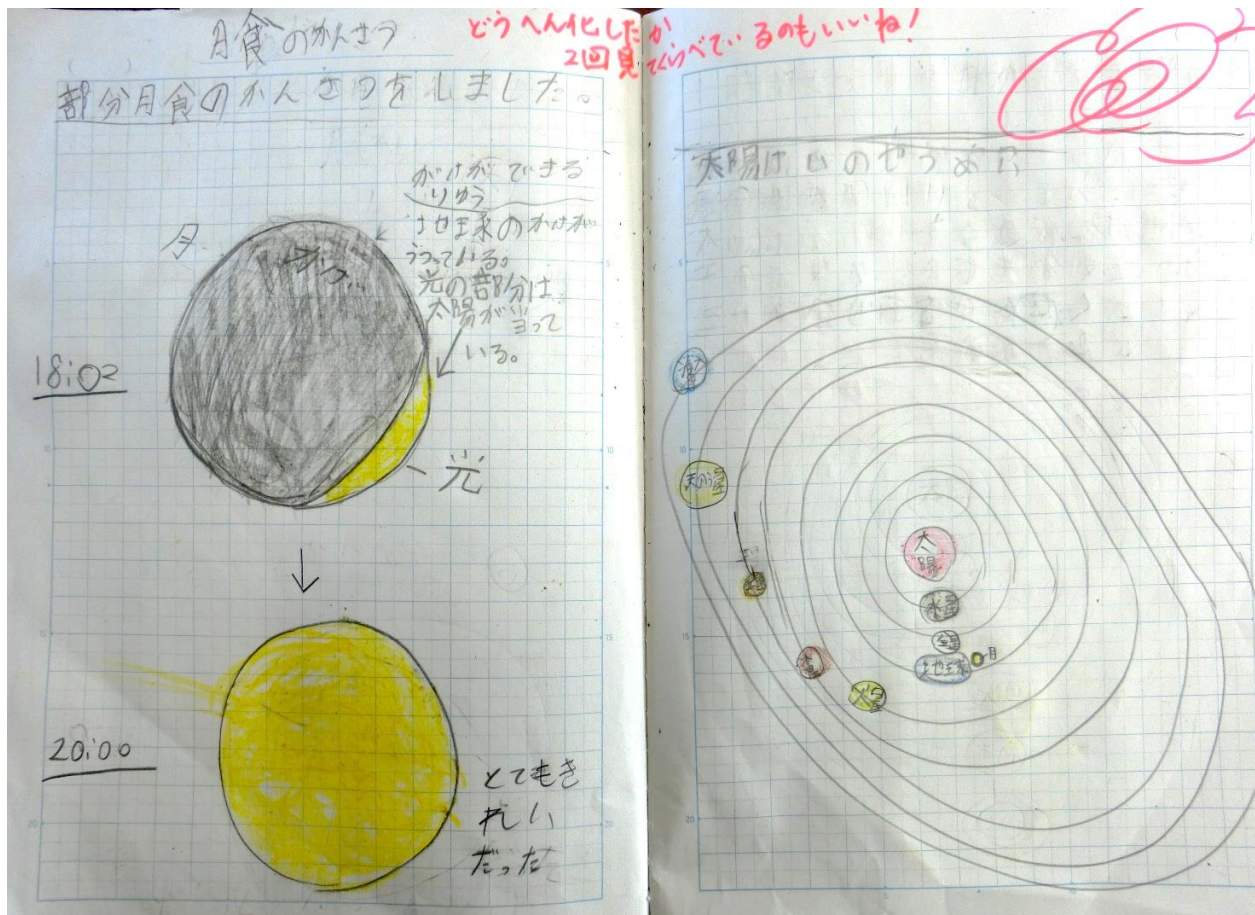 月食のかんさつ
どうへん化したか
2回見てくらべているのもいいね！
部分月食のかんさつをしました。
かげができる
りゆう
地球のかげが
うつっている。
光の部分は
太陽が当って
いる。
月
18:02
光
20:00
とてもき
れい
だった
太陽けいのぜうめん
海王星
天のう星
土星
木星
火星
太陽
水星
金星
地球
月